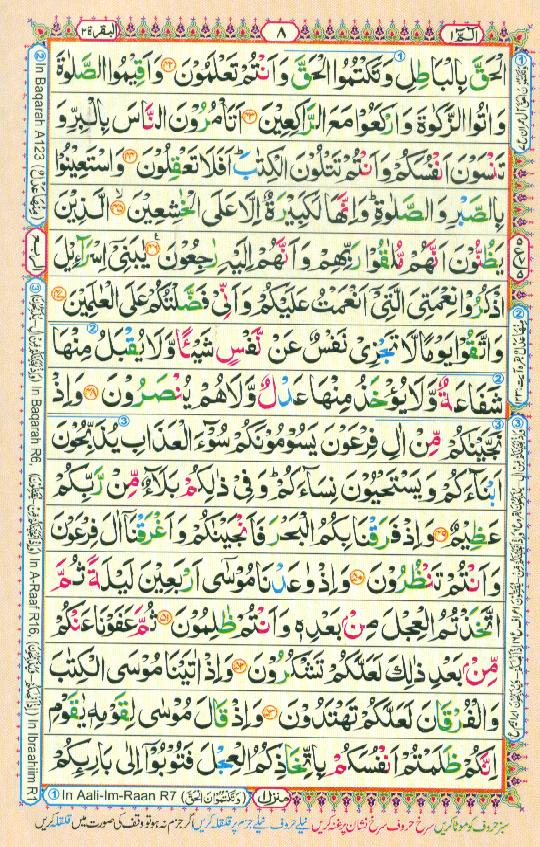 البقرة ٢
٨
الٓمّٓ ١
الْحَقَّ بِالْبَاطِلِ وَتَكْتُمُوا الْحَقَّ وَاَنْتُمْ تَعْلَمُوْنَ ﴿٤٢﴾ وَاَقِيْمُوا الصَّلٰوةَ
وَاٰتُوا الزَّكٰوةَ وَارْكَعُوْا مَعَ الرَّاكِعِيْنَ ﴿٤٣﴾ اَتَاْمُرُوْنَ النَّاسَ بِالْبِرِّ وَ
تَنْسَوْنَ اَنْفُسَكُمْ وَاَنْتُمْ تَتْلُوْنَ الْكِتٰبَ ؕ اَفَلَا تَعْقِلُوْنَ ﴿٤٤﴾ وَاسْتَعِيْنُوْا
بِالصَّبْرِ وَالصَّلٰوةِ ؕ وَاِنَّهَا لَكَبِيْرَةٌ اِلَّا عَلَى الْخٰشِعِيْنَ ﴿٤٥﴾ الَّذِيْنَ
يَظُنُّوْنَ اَنَّهُمْ مُّلٰقُوْا رَبِّهِمْ وَاَنَّهُمْ اِلَيْهِ رٰجِعُوْنَ ﴿٤٦﴾ يٰبَنِيْٓ اِسْرَآءِيْلَ
اذْكُرُوْا نِعْمَتِيَ الَّتِيْٓ اَنْعَمْتُ عَلَيْكُمْ وَاَنِّيْ فَضَّلْتُكُمْ عَلَى الْعٰلَمِيْنَ ﴿٤٧﴾
وَاتَّقُوْا يَوْمًا لَّا تَجْزِيْ نَفْسٌ عَنْ نَّفْسٍ شَيْـًٔا وَّلَا يُقْبَلُ مِنْهَا
شَفَاعَةٌ وَّلَا يُؤْخَذُ مِنْهَا عَدْلٌ وَّلَا هُمْ يُنْصَرُوْنَ ﴿٤٨﴾ وَاِذْ
نَجَّيْنٰكُمْ مِّنْ اٰلِ فِرْعَوْنَ يَسُوْمُوْنَكُمْ سُوْٓءَ الْعَذَابِ يُذَبِّحُوْنَ
اَبْنَآءَكُمْ وَيَسْتَحْيُوْنَ نِسَآءَكُمْ ؕ وَفِيْ ذٰلِكُمْ بَلَآءٌ مِّنْ رَّبِّكُمْ
عَظِيْمٌ ﴿٤٩﴾ وَاِذْ فَرَقْنَا بِكُمُ الْبَحْرَ فَاَنْجَيْنٰكُمْ وَاَغْرَقْنَآ اٰلَ فِرْعَوْنَ
وَاَنْتُمْ تَنْظُرُوْنَ ﴿٥٠﴾ وَاِذْ وٰعَدْنَا مُوْسٰٓى اَرْبَعِيْنَ لَيْلَةً ثُمَّ
اتَّخَذْتُمُ الْعِجْلَ مِنْۢ بَعْدِهٖ وَاَنْتُمْ ظٰلِمُوْنَ ﴿٥١﴾ ثُمَّ عَفَوْنَا عَنْكُمْ
مِّنْۢ بَعْدِ ذٰلِكَ لَعَلَّكُمْ تَشْكُرُوْنَ ﴿٥٢﴾ وَاِذْ اٰتَيْنَا مُوْسَى الْكِتٰبَ
وَالْفُرْقَانَ لَعَلَّكُمْ تَهْتَدُوْنَ ﴿٥٣﴾ وَاِذْ قَالَ مُوْسٰى لِقَوْمِهٖ يٰقَوْمِ
اِنَّكُمْ ظَلَمْتُمْ اَنْفُسَكُمْ بِاتِّخَاذِكُمُ الْعِجْلَ فَتُوْبُوْٓا اِلٰى بَارِىِٕكُمْ
② In Baqarah A123 (مِنْهَا عَدْلٌ)
الربع
③ In Baqarah R6, In A-Raaf R16, In Ibraahiim R1
① In Aali-Im-Raan R7 (وَتَكْتُمُوْنَ الْحَقَّ)
منزل ١
سبز حروف کو موٹا کریں سرخ حروف سرخ نشان پر غنہ کریں نیلے حروف نیلے جزم پر قلقلہ کریں اگر جزم نہ ہو تو وقف کی صورت میں قلقلہ کریں